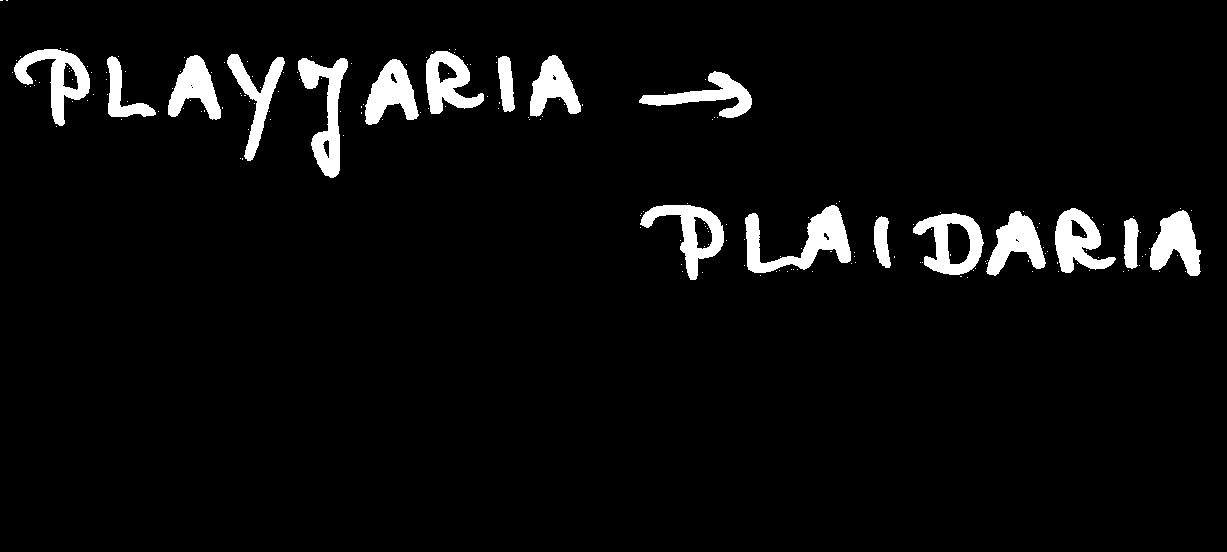 PLAYJARIA →
PLAIDARIA